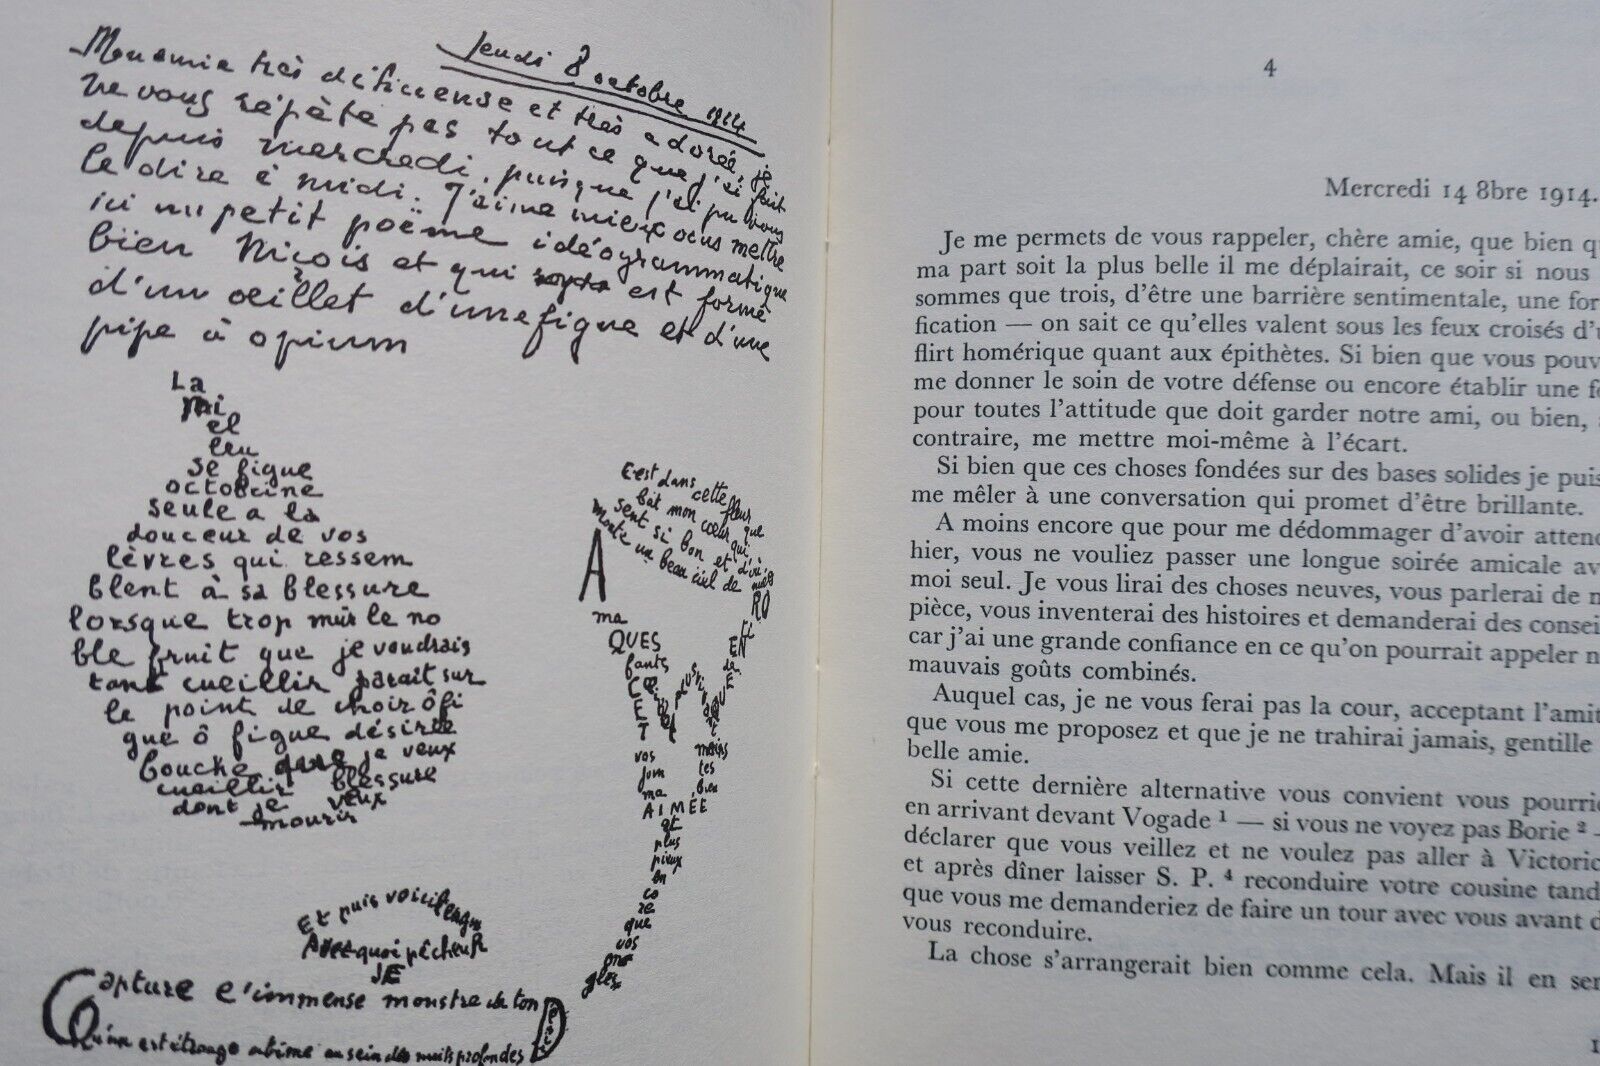 Jeudi 8 octobre 1914
Mon amie très délicieuse et très adorée, je
ne vous répète pas tout ce que j'ai fait
depuis mercredi, puisque j'ai pu vous
le dire à midi. J'aime mieux vous mettre
ici un petit poëme idéogrammatique
bien Niçois et qui est formé
d'un œillet d'une figue et d'une
pipe à opium
La
mi
el
leu
se figue
octobrine
seule a la
douceur de vos
lèvres qui ressem
blent à sa blessure
lorsque trop mûr le no
ble fruit que je voudrais
tant cueillir paraît sur
le point de choir ô fi
gue ô figue désirée
bouche que je veux
cueillir blessure
dont je veux
mourir
C'est dans cette fleur que
bat mon cœur qui
sent si bon et d'où
monte un beau ciel de nuées
A
RO
ma
ti
QUES
EN
fants
de
CET
ŒILLET
plus vivant
QUE
vos
mains
join
tes
ma
bien
AIMÉE
et
plus
pieux
en
co
re
que
vos
on
gles
Et puis voici l'engin
Avec quoi pêcheur
JE
Capture l'immense monstre de ton œil
Qu'un art étrange abîme au sein des nuits profondes
4
Mercredi 14 8bre 1914.
Je me permets de vous rappeler, chère amie, que bien q
ma part soit la plus belle il me déplairait, ce soir si nous
sommes que trois, d'être une barrière sentimentale, une for
fication — on sait ce qu'elles valent sous les feux croisés d'u
flirt homérique quant aux épithètes. Si bien que vous pouv
me donner le soin de votre défense ou encore établir une f
pour toutes l'attitude que doit garder notre ami, ou bien,
contraire, me mettre moi-même à l'écart.
Si bien que ces choses fondées sur des bases solides je puis
me mêler à une conversation qui promet d'être brillante.
A moins encore que pour me dédommager d'avoir attend
hier, vous ne vouliez passer une longue soirée amicale av
moi seul. Je vous lirai des choses neuves, vous parlerai de m
pièce, vous inventerai des histoires et demanderai des consei
car j'ai une grande confiance en ce qu'on pourrait appeler n
mauvais goûts combinés.
Auquel cas, je ne vous ferai pas la cour, acceptant l'amit
que vous me proposez et que je ne trahirai jamais, gentille
belle amie.
Si cette dernière alternative vous convient vous pourri
en arrivant devant Vogade ¹ — si vous ne voyez pas Borie ² -
déclarer que vous veillez et ne voulez pas aller à Victori
et après dîner laisser S. P. ⁴ reconduire votre cousine tand
que vous me demanderiez de faire un tour avec vous avant d
vous reconduire.
La chose s'arrangerait bien comme cela. Mais il en ser